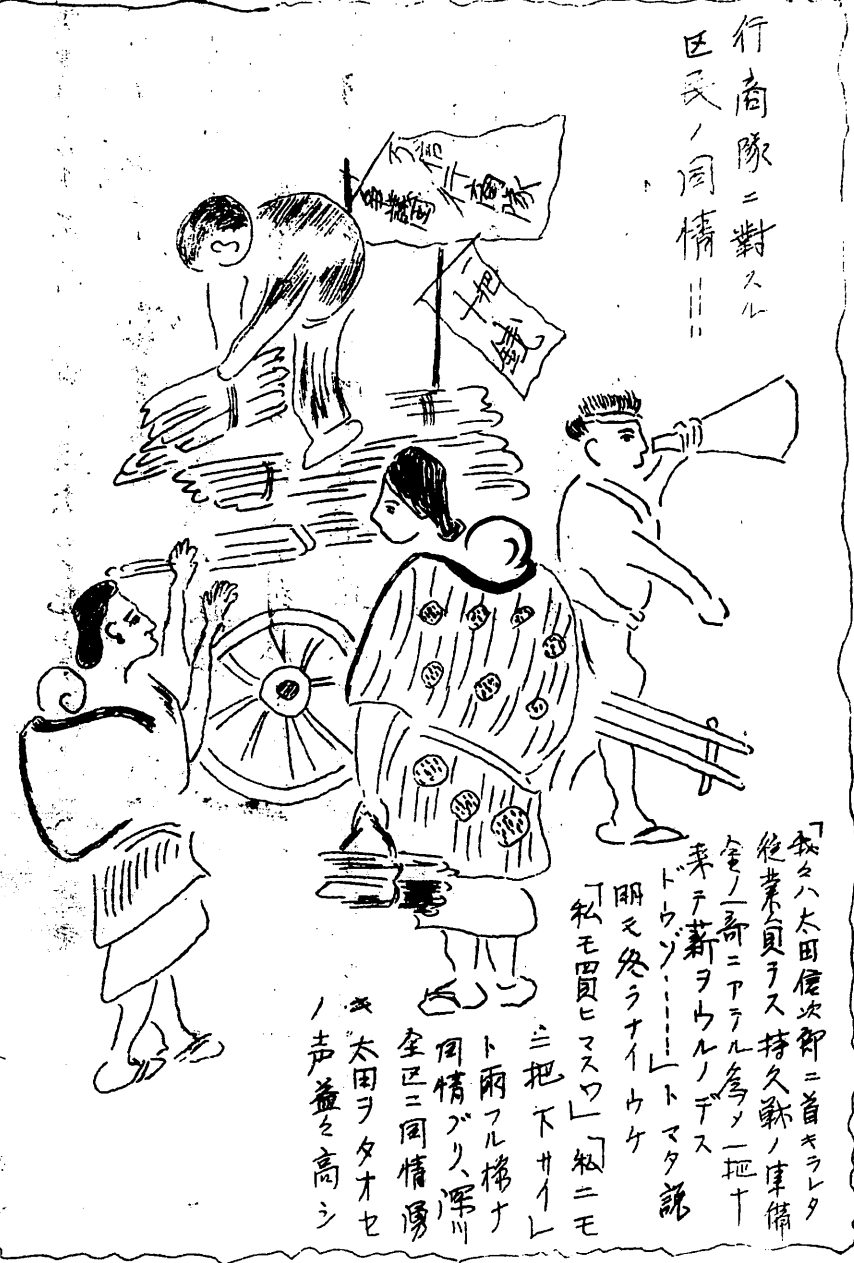 行商隊ニ對スル
区民ノ同情
行商隊
一把
十銭
「我々ハ太田信次郎ニ首キラレタ
従業員デス持久戦ノ準備
金ノ一部ニアテル為メ一把十
来テ薪ヲウルノデス
ドウゾ……」トマタ説
明モ終ラナイウケ
「私モ買ヒマスワ」「私ニモ
三把下サイ」
ト雨フル様ナ
同情ブリ、深川
全区ニ同情湧
キ太田ヲタオセ
ノ声益々高シ